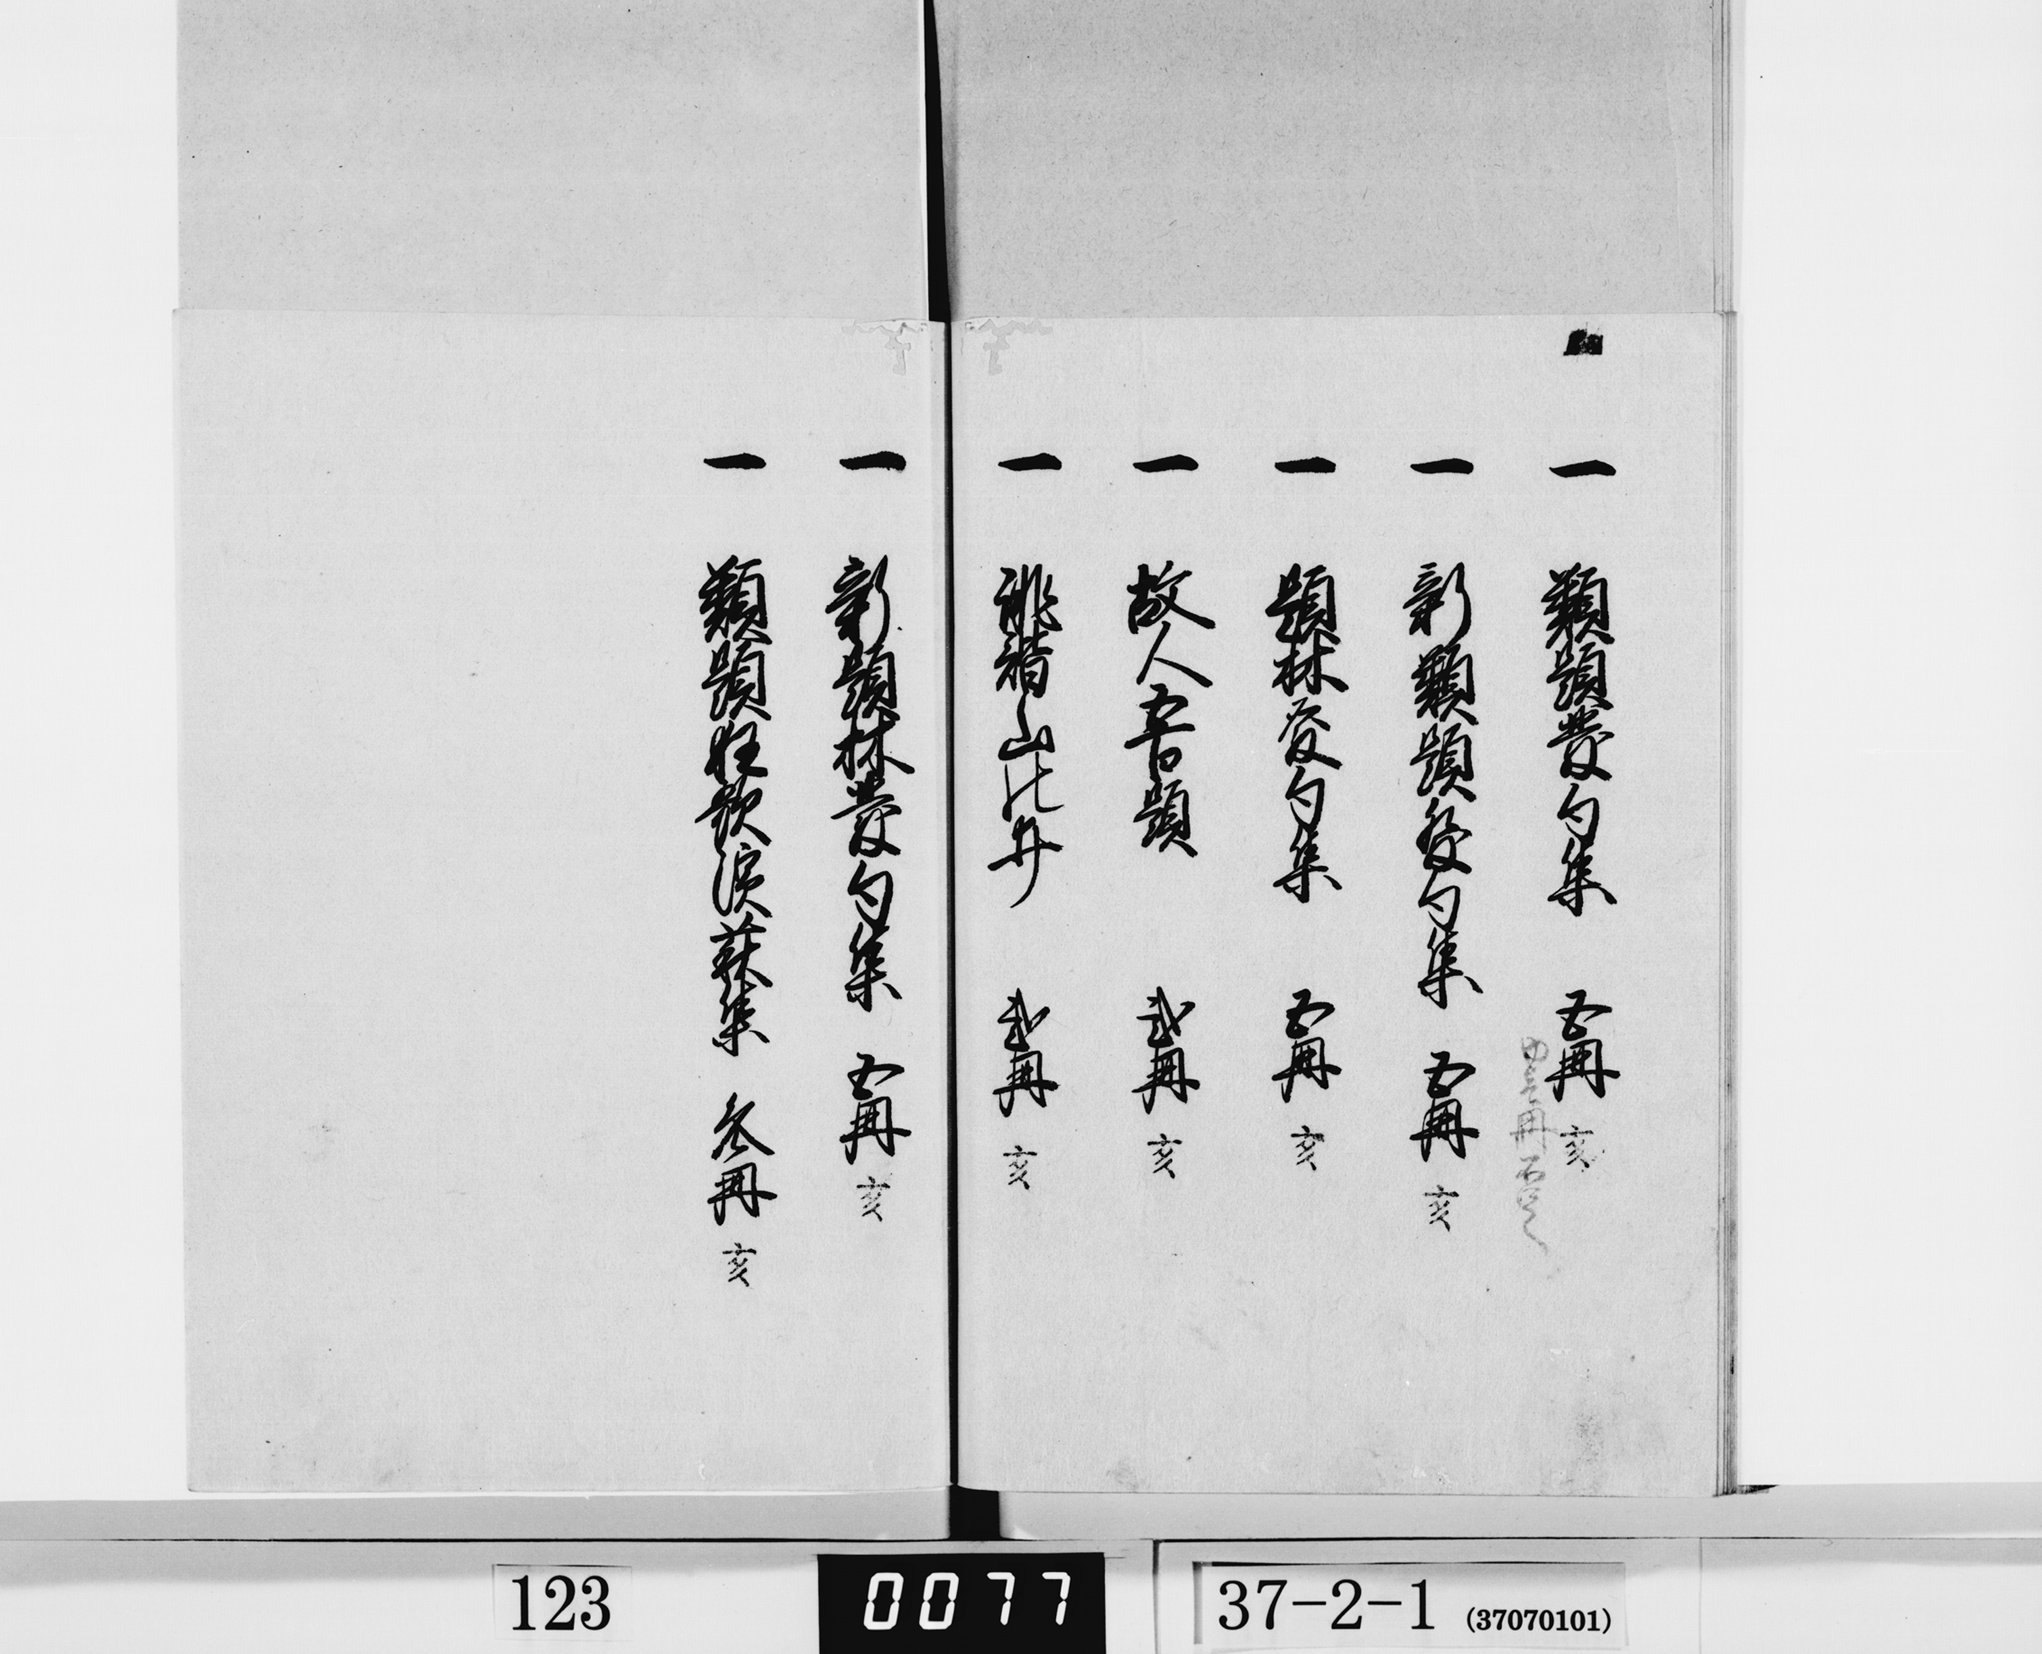 一 類題發句集 五冊 亥
一 新類題發句集 五冊 亥
一 題林發句集 五冊 亥
一 故人五百題 弐冊 亥
一 俳諧山比井 弐冊 亥
一 新題林發句集 五冊 亥
一 類題狂歌浪荻集 参冊 亥
123
0077
37-2-1 (37070101)